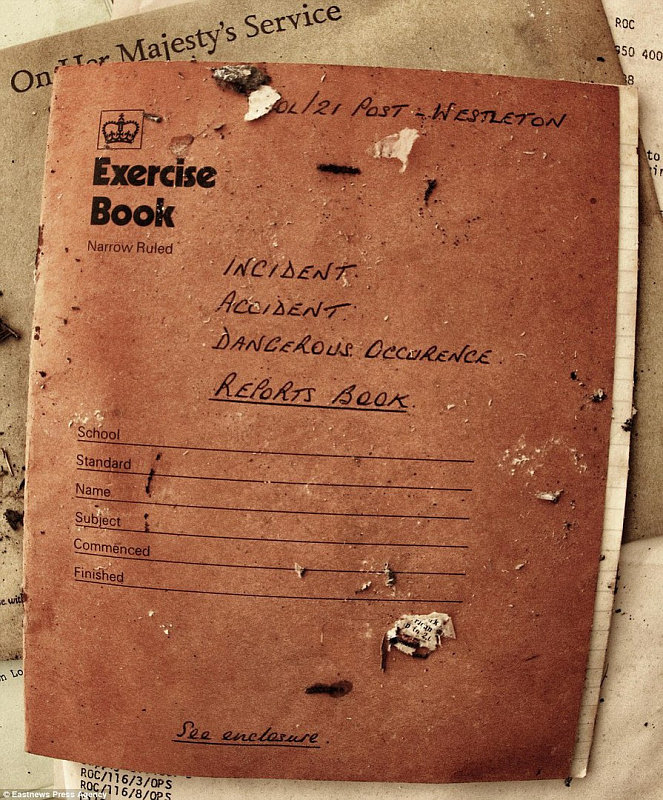 On Her Majesty's Service
ROC
950 400
OL/21 POST - WESTLETON
Exercise
Book
Narrow Ruled
to
INCIDENT.
ACCIDENT.
DANGEROUS OCCURENCE.
REPORTS BOOK.
School
Standard
Name
Subject
Commenced
Finished
See enclosure.
ROC/116/3/OPS
ROC/116/8/OPS
© Eastnews Press Agency